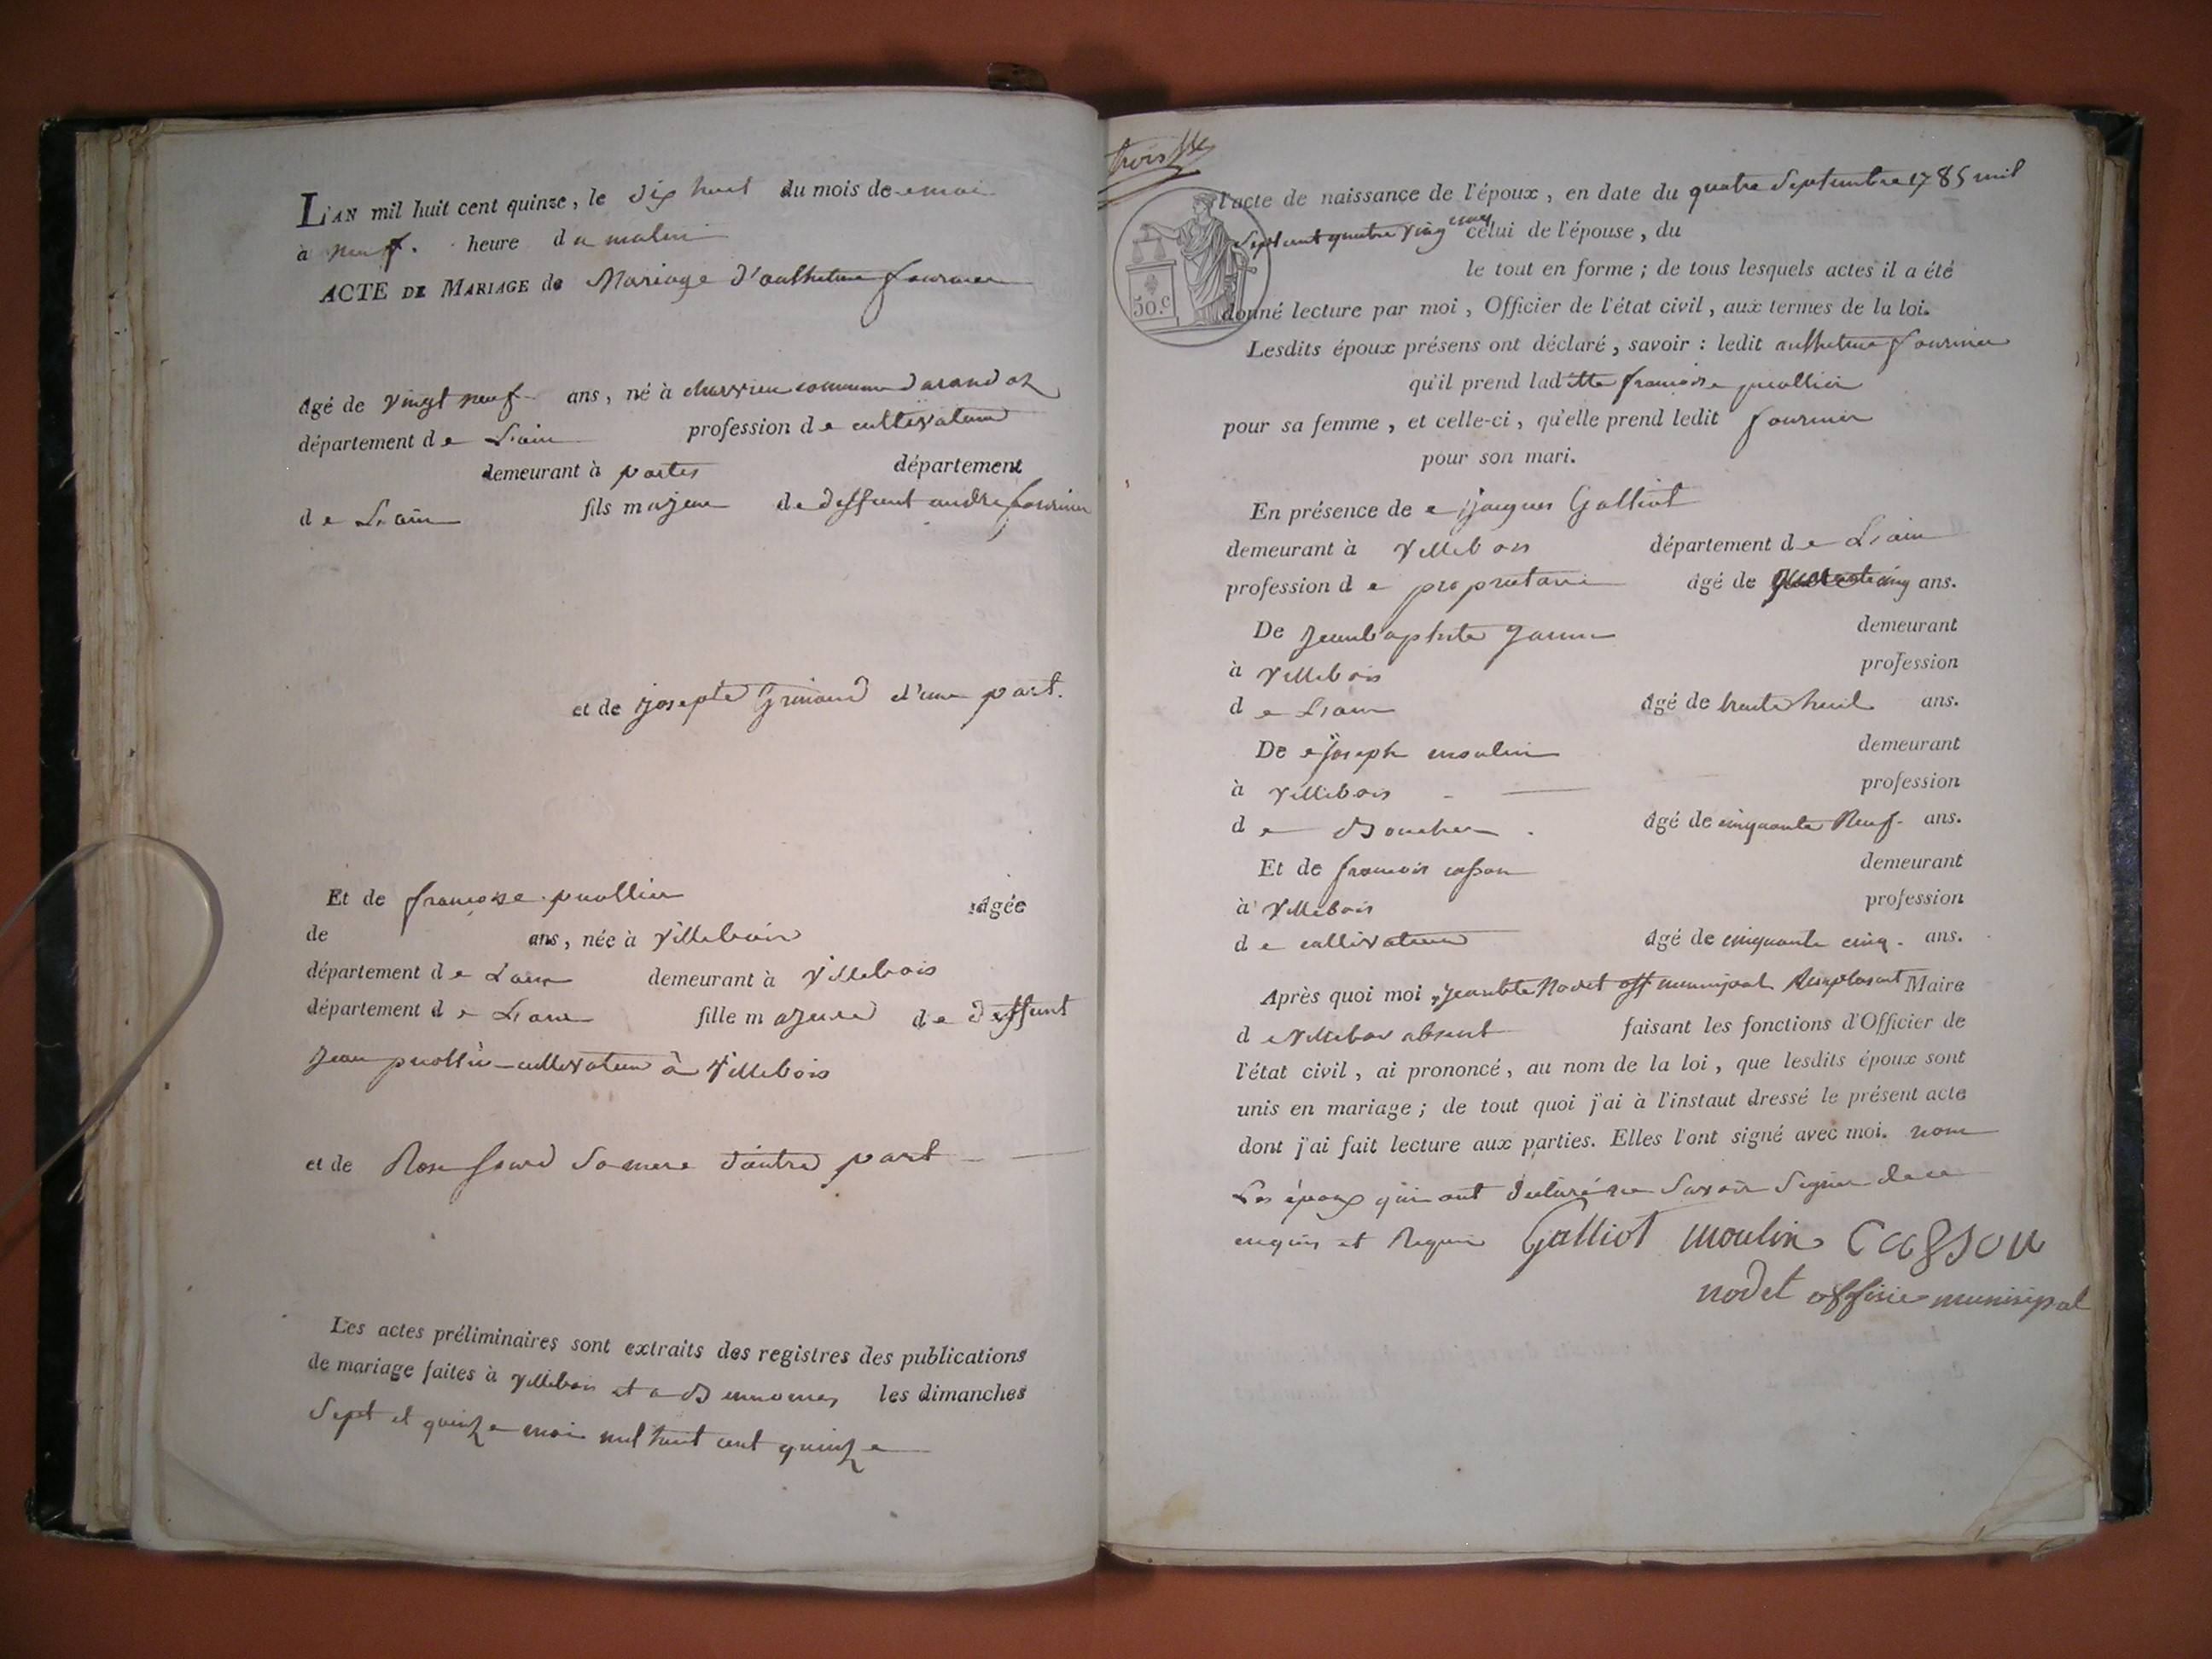 L'AN mil huit cent quinze, le dix huit du mois de mai
à neuf heure du matin
ACTE DE MARIAGE de Mariage d'anthelme fournier
âgé de vingt neuf ans, né à charvieu commune d'arandaz
département de L'ain profession de cultivateur
demeurant à portes département
de L'ain fils majeur de deffunt andre fournier
et de josepte Grinand d'une part.
Et de françoise âgée
de ans, née à Villebois
département de Lain demeurant à Villebois
département de L'ain fille majeure de deffunt
jean cultivateur à Villebois
et de Rose sa mere d'autre part
Les actes préliminaires sont extraits des registres des publications
de mariage faites à Villebois et a les dimanches
Sept et quinze mai mil huit cent quinze
trois
50.c
l'acte de naissance de l'époux, en date du quatre Septembre 1785 mil
Sept cent quatre ving cinq celui de l'épouse, du
le tout en forme ; de tous lesquels actes il a été
donné lecture par moi, Officier de l'état civil, aux termes de la loi.
Lesdits époux présens ont déclaré, savoir : ledit anthelme fournier
qu'il prend laditte françoise
pour sa femme, et celle-ci, qu'elle prend ledit fournier
pour son mari.
En présence de jacques Galliot
demeurant à Villebois département de L'ain
profession de proprietaire âgé de cinq ans.
De jeanbaptiste demeurant
à Villebois profession
de L'ain âgé de trente huit ans.
De joseph moulin demeurant
à Villebois profession
de Boucher âgé de cinquante Neuf ans.
Et de francois casson demeurant
à Villebois profession
de cultivateur âgé de cinquante cinq ans.
Après quoi moi jean bte Nodet off municipal Remplasant Maire
de Villebois absent faisant les fonctions d'Officier de
l'état civil, ai prononcé, au nom de la loi, que lesdits époux sont
unis en mariage ; de tout quoi j'ai à l'instaut dressé le présent acte
dont j'ai fait lecture aux parties. Elles l'ont signé avec moi. non
Les époux qui ont declaré ne Savoir Signer de ce
enquis et Requis Galliot moulin Casson
nodet offisier munisipal